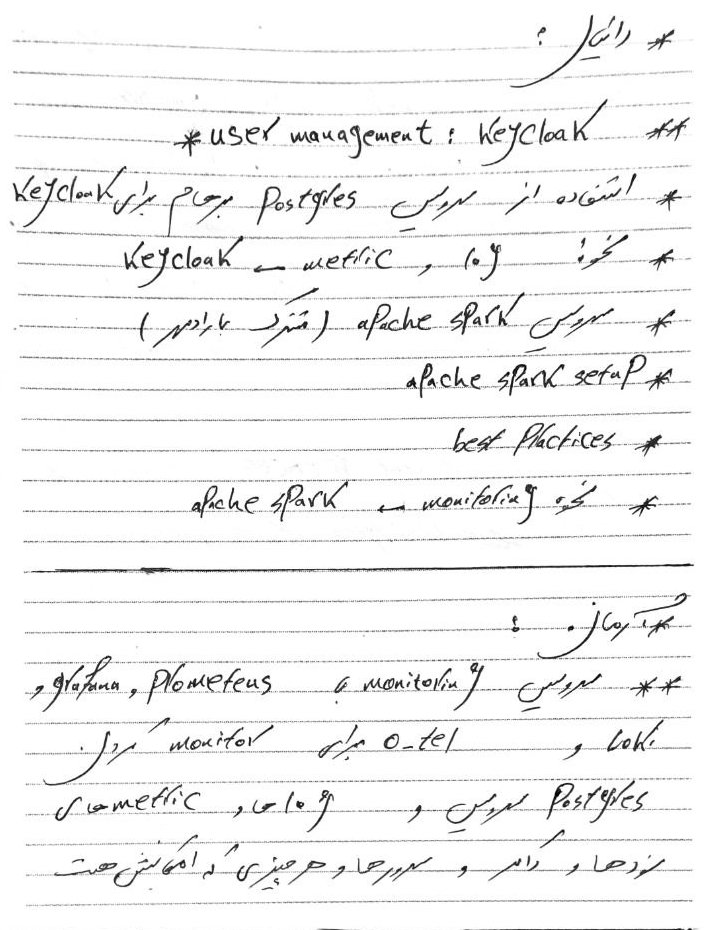 * دانیال :
** user management : keycloak *
* استفاده از سرویس Postgres برحام برای keycloak
* نحوهٔ log و metric ← keycloak
* سرویس apache spark (مشترک با رادمهر)
* apache spark setup
* best Practices
* نحوه monitoring ← apache spark
* آرمان :
** سرویس monitoring با grafana , Prometeus ,
Loki و o_tel برای monitor کردن
Postgres سرویس و log ها و metric های
نودها و داکر و سرورها و هر چیزی که امکانش هست